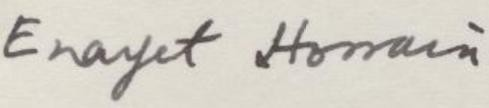 Enayet Hossain